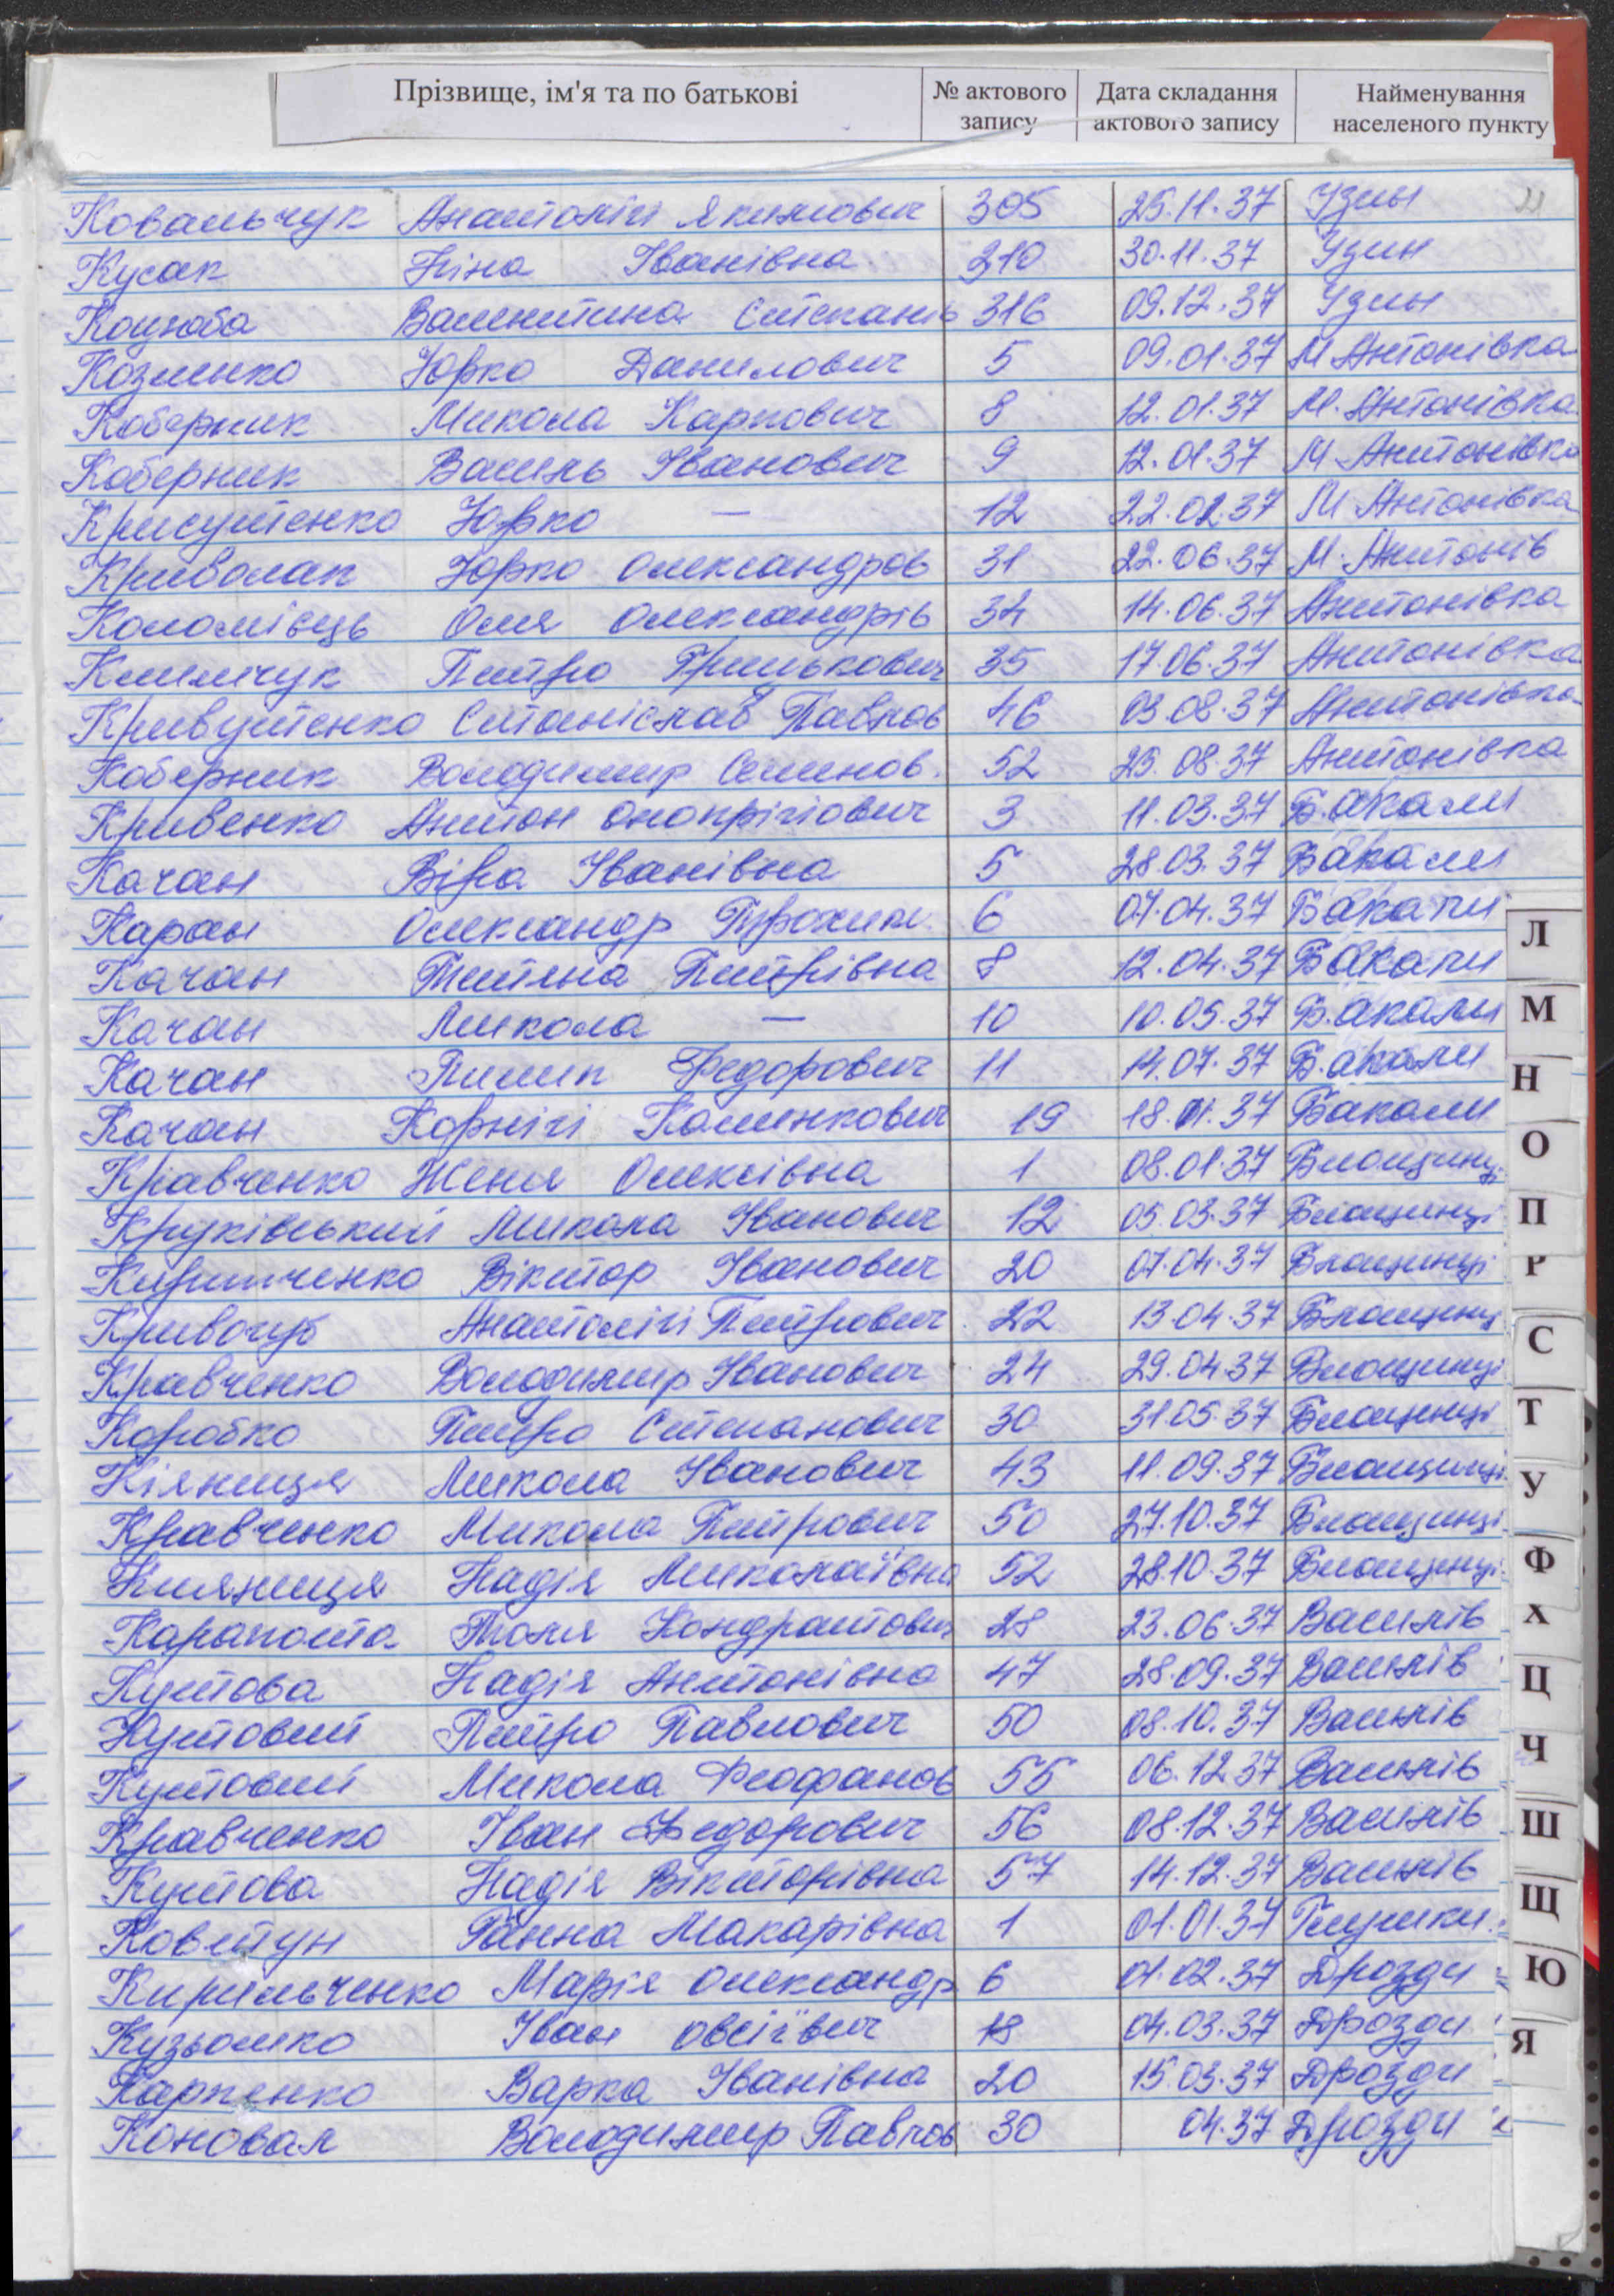 Прізвище, ім'я та по батькові № актового запису Дата складання актового запису Найменування населеного пункту
Ковальчук Анатолій Якимович 305 25.11.37 Узин
Кусак Ніна Іванівна 210 30.11.37 Узин
Коцюба Валентина Степанів 316 09.12.37 Узин
Козленко Юрко Данилович 5 09.01.37 М Антонівка
Коберник Микола Карпович 8 12.01.37 М. Антонівка
Коберник Василь Іванович 9 12.01.37 М Антонівка
Крисутенко Юрко — 12 22.02.37 М Антонівка
Криволап Юрко Олександров 31 22.06.37 М. Антонів
Коломієць Оля Олександрів 34 14.06.37 Антонівка
Климчук Петро Гринькович 35 17.06.37 Антонівка
Кривутенко Станіслав Павлов 46 03.08.37 Антонівка
Коберник Володимир Семенов. 52 25.08.37 Антонівка
Кривенко Антон Онопрійович 3 11.03.37 Бакали
Качан Віра Іванівна 5 28.03.37 Бакали
Каран Олександр 6 07.04.37 Бакали
Качан Тетяна Петрівна 8 12.04.37 Бакали
Качан Микола — 10 10.05.37 Бакали
Качан Пилип Федорович 11 14.07.37 Бакали
Качан Корній 19 18.11.37 Бакали
Кравченко Женя Олексівна 1 08.01.37 Блощинці
Круківський Микола Іванович 12 05.03.37 Блощинці
Віктор Іванович 20 07.04.37 Блощинці
Кривочуб Анатолій Петрович 22 13.04.37 Блощинці
Кравченко Володимир Іванович 24 29.04.37 Блощинці
Коробко Петро Степанович 30 31.05.37 Блощинці
Кіяниця Микола Іванович 43 11.09.37 Блощинці
Кравченко Микола Петрович 50 27.10.37 Блощинці
Кияниця Надія Миколаївна 52 28.10.37 Блощинці
Карапота Толя Кондратович 28 23.06.37 Василів
Кутова Надія Антонівна 47 28.09.37 Василів
Кутовий Петро Павлович 50 08.10.37 Василів
Кутовий Микола Феофанов 55 06.12.37 Василів
Кравченко Іван Федорович 56 08.12.37 Василів
Кутова Надія Вікторівна 57 14.12.37 Василів
Ковтун Ганна Макарівна 1 01.01.37 Глушки
Кирильченко Марія Олександр 6 01.02.37 Дрозди
Кузьомко Іван Овсіївич 18 04.03.37 Дрозди
Карпенко Варка Іванівна 20 15.03.37 Дрозди
Коновал Володимир Павлов 30 04.37 Дрозди
Л
М
Н
О
П
Р
С
Т
У
Ф
Х
Ц
Ч
Ш
Щ
Ю
Я